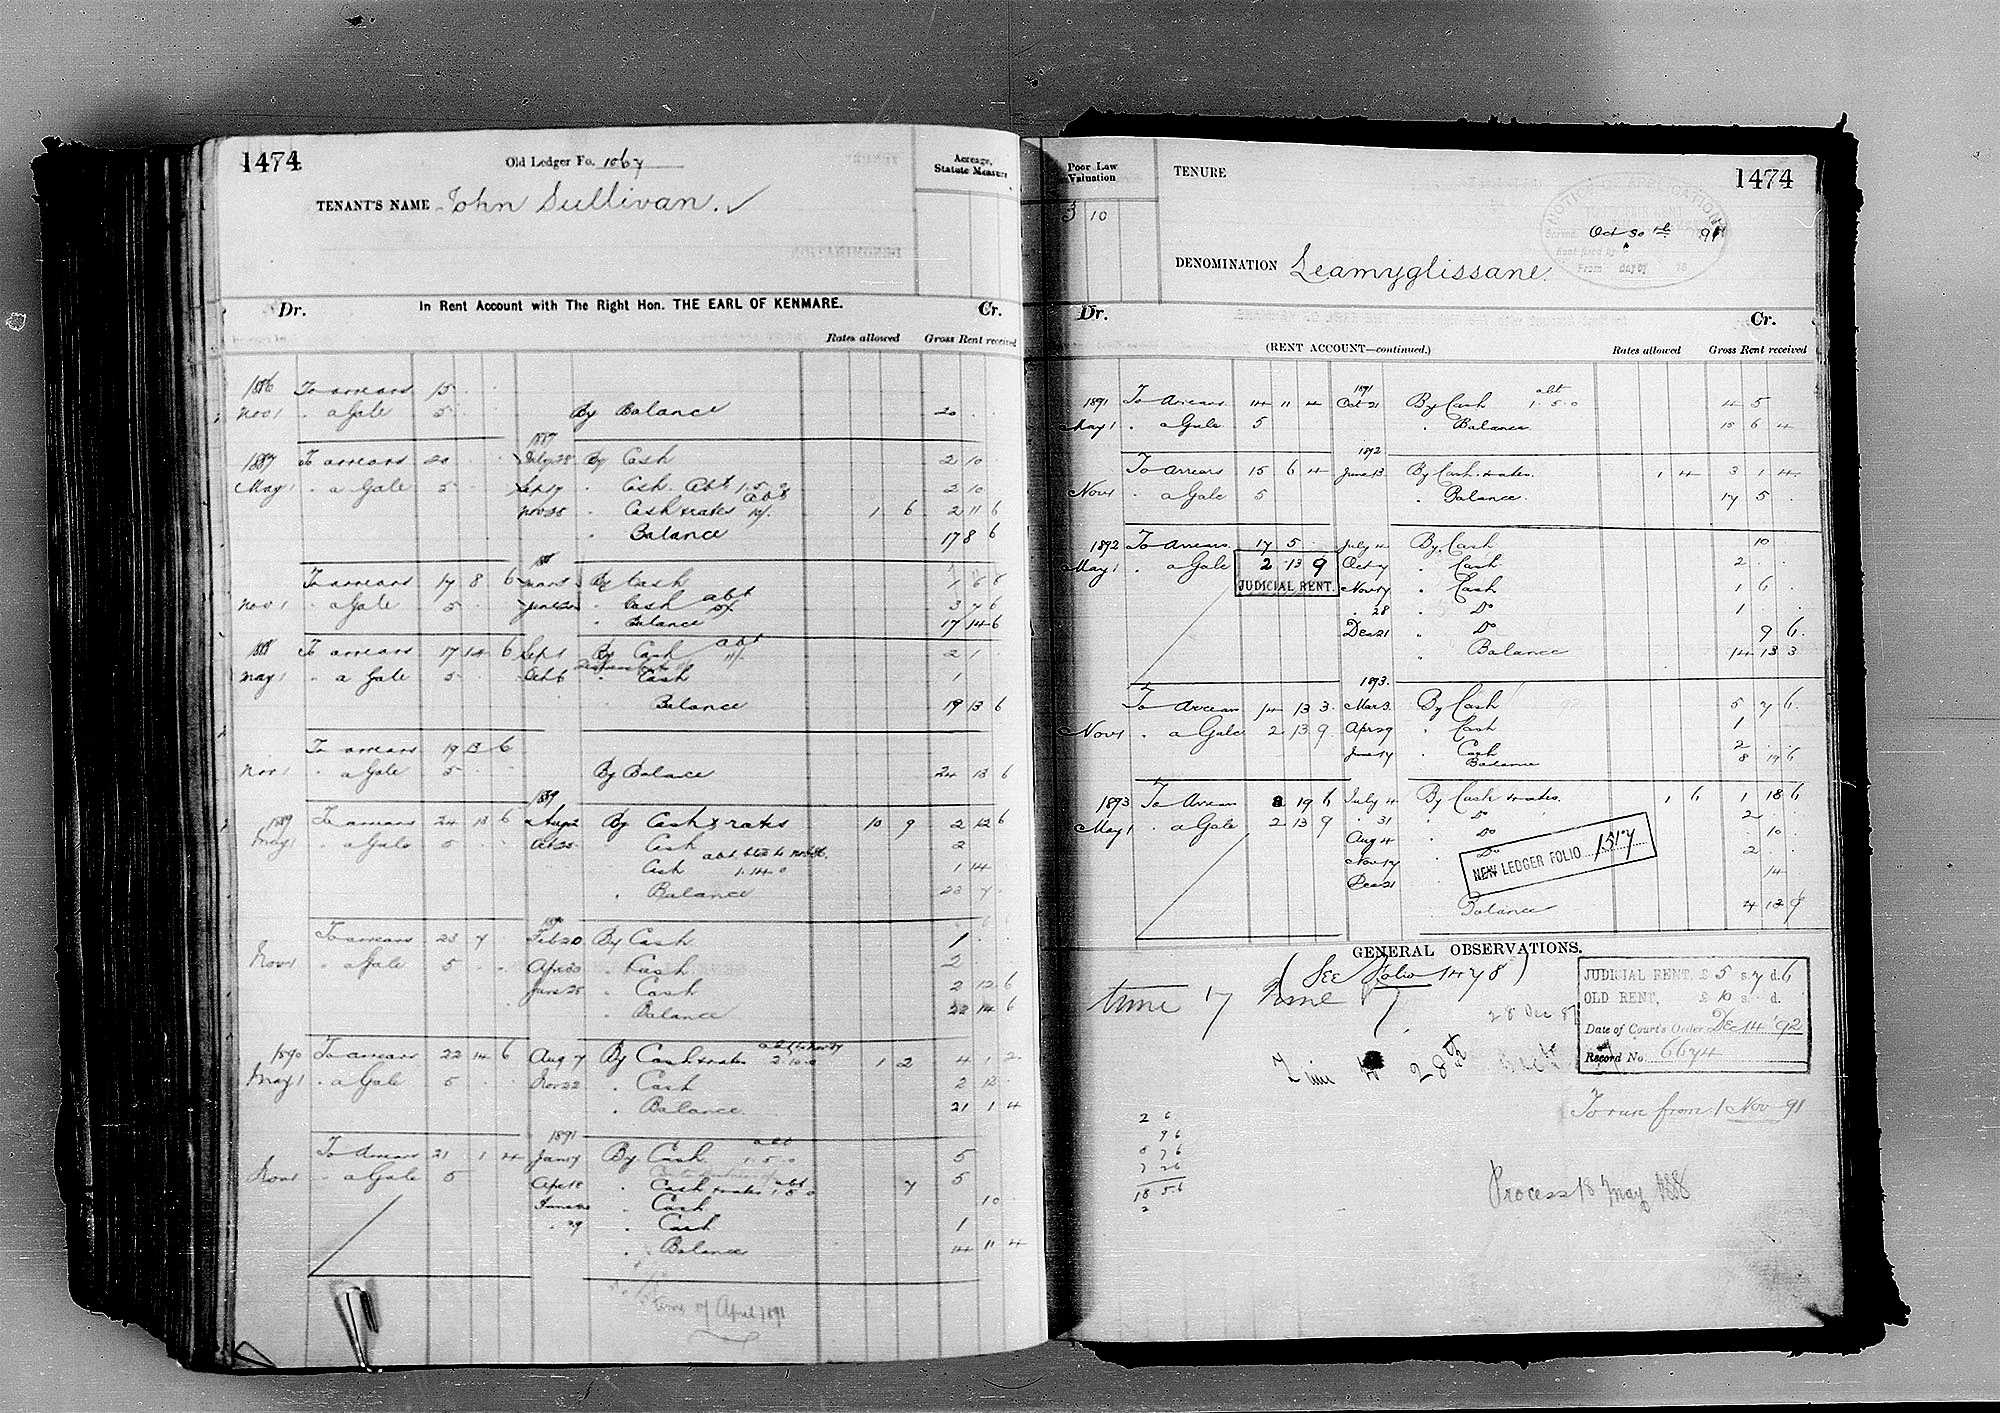 1474
Old Ledger Fo. 1067
TENANT'S NAME John Sullivan. ✓
Acreage, Statute Measure
Dr. In Rent Account with The Right Hon. THE EARL OF KENMARE. Cr.
Rates allowed Gross Rent received
1886 To arrears 15 . .
Nov 1 " a Gale 5 . . By Balance 20 . .
1887
1887 To arrears 20 . . July 28 By Cash 2 10
May 1 " a Gale 5 . . Sep 17 " Cash. Abt 1.5.0 2 10
Nov 25 " Cash & rates abt 10/- 1 6 2 11 6
" Balance 17 8 6
To arrears 17 8 6 By Cash
Nov 1 " a Gale 5 . . June " Cash abt 3 7 6
" Balance 17 14 6
1888 To arrears 17 14 6 Sept 1 By Cash abt 2 1
May 1 " a Gale 5 . . Oct 6 " Cash 1
Balance 19 13 6
To arrears 19 13 6
Nov 1 " a Gale 5 . . By Balace 24 13 6
1889
1889 To arrears 24 13 6 Aug 2 By Cash & rates 10 9 2 12 6
May 1 " a Gale 5 . . Oct 25 Cash 2
Cash 1.14.0 1 14
" Balance 23 7
1890
To arrears 23 7 Feb 20 By Cash 1 . .
Nov 1 " a Gale 5 . . Apr 30 " Cash 2 . .
June 25 " Cash 2 12 6
" Balance 22 14 6
1890 To arrears 22 14 6 Aug 7 By Cash & rates 2.10.0 1 2 4 1 2
May 1 " a Gale 5 . . Nov 22 " Cash 2 12 .
" Balance 21 1 4
1891
To Arrears 21 1 4 Jan 7 By Cash abt 1.5.0 5
Nov 1 " a Gale 5 Apr 18 " Cash & rates abt 1.5.0 7 5
June " Cash 10
" 29 " Cash 1
" Balance 14 11 4
time of April 1891
Poor Law Valuation
3 10
TENURE
1474
NOTICE OF APPLICATION
Oct 30th 91
DENOMINATION Leamyglissane
Dr. Cr.
(RENT ACCOUNT—continued.)
Rates allowed Gross Rent received
1891 abt
1891 To Arrears 14 11 4 Oct 21 By Cash 1.5.0 4 5
May 1 " a Gale 5 " Balance 15 6 4
1892
To Arrears 15 6 4 June 13 By Cash & rates 1 4 3 1 4
Nov 1 " a Gale 5 " Balance 17 5 .
1892 To Arrears 17 5 . July 4 By Cash 10
May 1 " a Gale 2 13 9 Oct 7 " Cash 2 . .
JUDICIAL RENT. Nov 17 " Cash 1 6 .
" 28 " Do 1 . .
Dec 21 " Do 9 6
" Balance 14 13 3
1893.
To Arrears 14 13 3 Mar 3 By Cash 5 7 6
Nov 1 " a Gale 2 13 9 Apr 29 " Cash 1
June 17 " Cash 2 . .
Balance 8 19 6
1893 To Arrears 8 19 6 July 4 By Cash & rates. 1 6 1 18 6
May 1 " a Gale 2 13 9 " 31 " Do 2 . .
Aug 4 " Do 10 .
Nov 17 " Do 2 . .
Dec 21 " 14
NEW LEDGER FOLIO 1517
Balance 4 12 9
GENERAL OBSERVATIONS.
(See Folio 1478)
time
28 Dec 87
28th
JUDICIAL RENT, £5 s. 7 d. 6
OLD RENT, £10 s. d.
Date of Court's Order Dec 14 '92
Record No. 6674
To run from 1 Nov 91
2 6
9 6
5 7 6
18 5 6
2
Process 18 May 1888